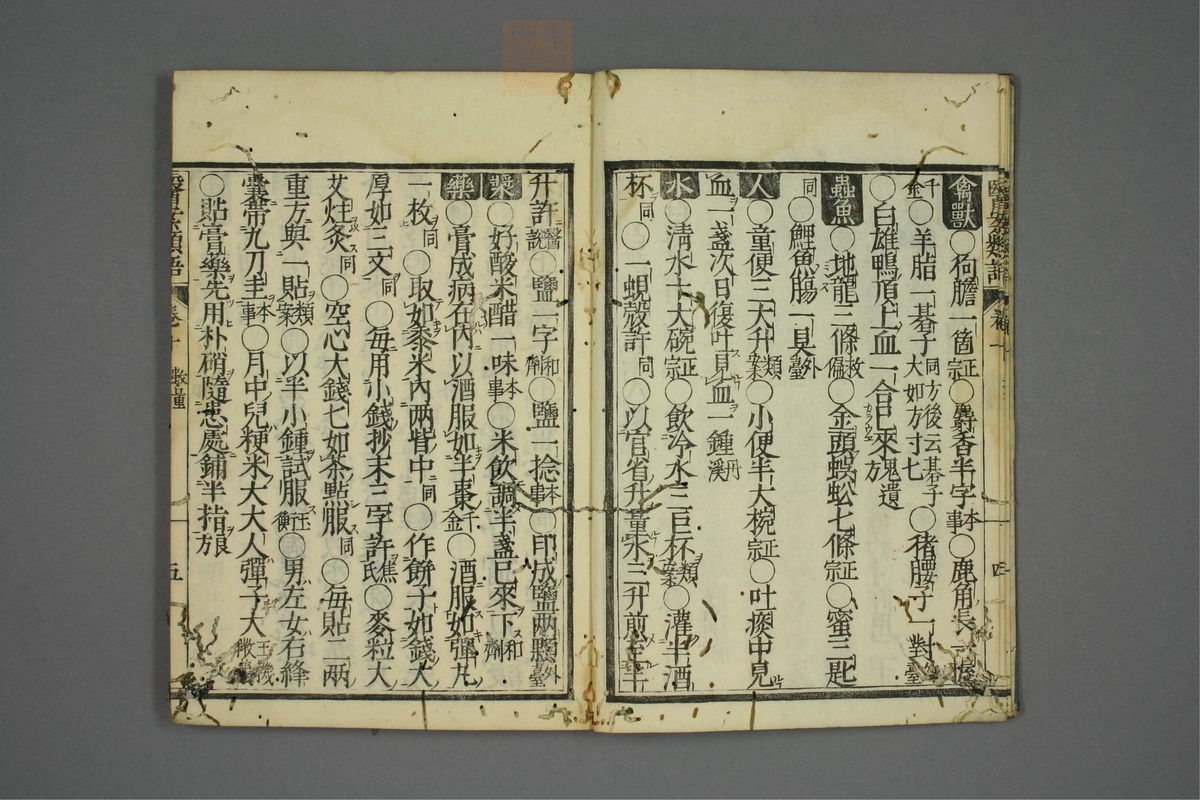 禽獸○狗膽一箇正宗○麝香半字本事○鹿角長一握
千金○羊脂一碁子同方後云碁子大如方寸匕○猪腰子一對外臺
○白雄鴨頂上血一合巳來遺方
蟲魚○地龍三條○金頭蜈蚣七條正宗○蜜三匙
同○鯉魚腸一具外臺
人○童便三大升類案○小便半大椀正宗○吐瘀中見
血一盞次日復吐見血一鍾丹溪
水○清水十大碗正宗○飲冷水三巨杯類案○灌半酒
杯同○一蜆殼許同○以官省升量水三升煎至半
醫案類語 卷 四
升許醫説○鹽一字和劑○鹽一捻本事○印成鹽兩顆外臺
漿○好酸米醋一味本事○米飲調半盞巳來下和劑
藥○膏成病在内以酒服如半棗千金○酒服如彈丸
一枚同○取如黍米内兩眥中同○作餅子如錢大
厚如三文同○毎用小錢抄末三字許焦氏○麥粒大
艾炷灸同○空心大錢七如茶點服同○毎貼二兩
重方與一貼類案○以半小鍾試服王衡○男左女右絳
囊帶九刀圭本事○月中兒粳米大大人彈子大王機微義
○貼膏藥先用朴硝隨患處鋪半指良方
醫案類語 卷十 數量 五